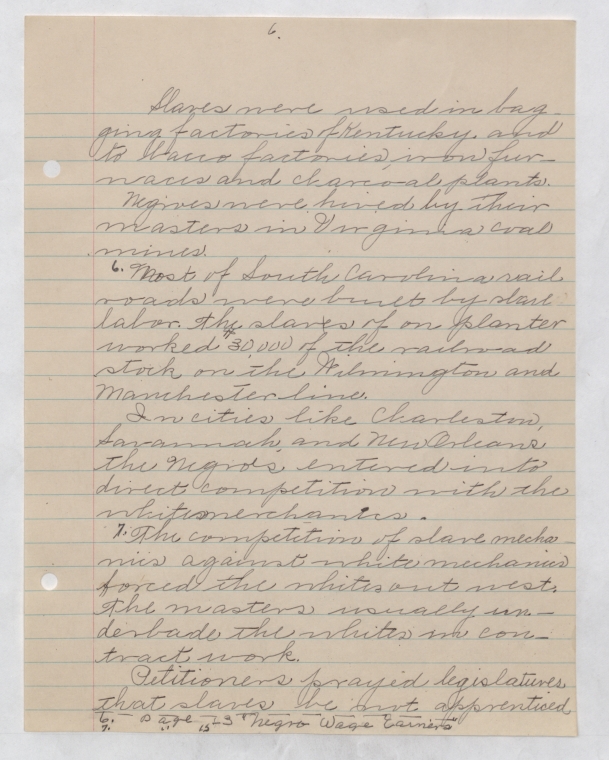 6.
Slaves were used in bag-
ging factories of Kentucky and
to bacco factories, iron fur-
naces and charco-al plants.
Negroes were hired by their
masters in Virginia coal
mines.
6. Most of South Carolina rail
roads were built by slave
labor. The slaves of on planter
worked $30,000 of the railroad
stock on the Wilmington and
Manchester line.
In cities like Charleston,
Savannah, and New Orleans
the Negros entered into
direct competition with the
white merchanics.
7. The competition of slave mecha-
nics against white mechanics
forced the whites out west.
The masters usually un-
derbade the whites in con-
tract work.
Petitioners prayed legislatures
that slaves be not apprenticed
6. Page 13 "Negro Wage Earners"
7. " 15